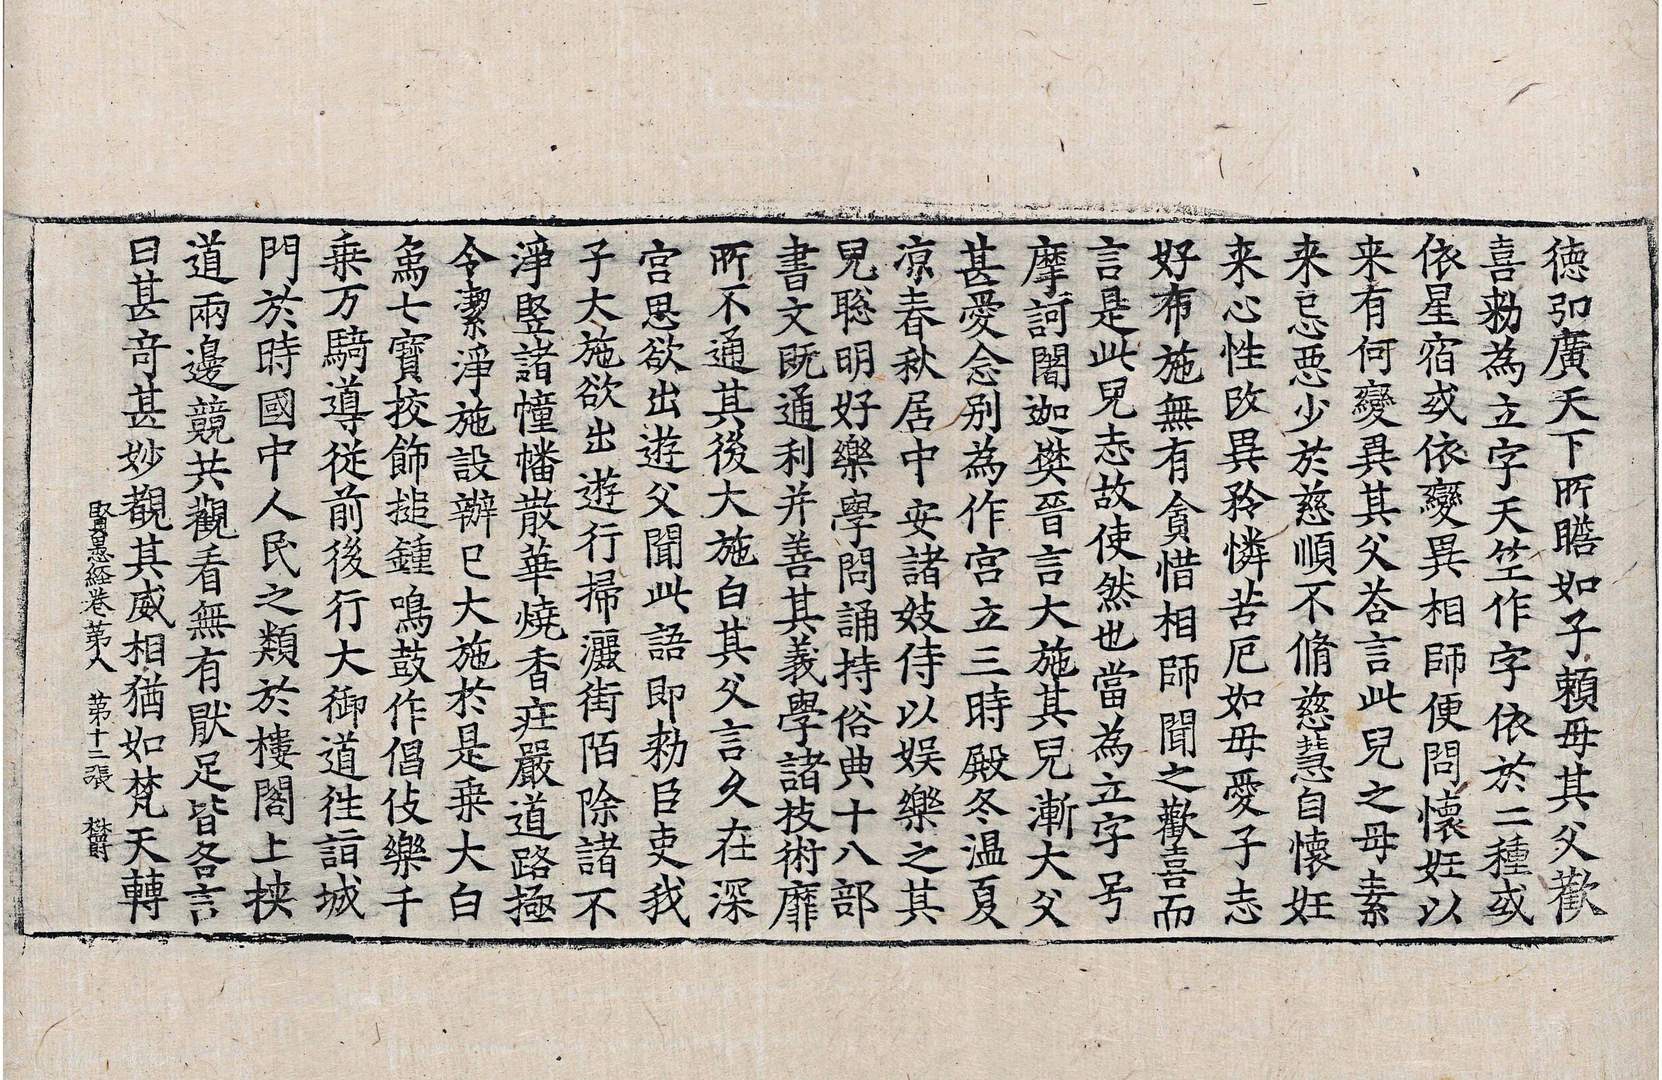 德弘廣天下所瞻如子賴母其父歡
喜勑為立字天竺作字依於二種或
依星宿或依變異相師便問懷妊以
来有何變異其父荅言此兒之母素
来忌悪少於慈順不脩慈慧自懷妊
来心性改異矜憐苦厄如母愛子志
好布施無有貪惜相師聞之歡喜而
言是此兒志故使然也當為立字号
摩訶闍迦樊晉言大施其兒漸大父
甚愛念別為作宫立三時殿冬温夏
凉春秋居中安諸妓侍以娱樂之其
兒聡明好樂學問誦持俗典十八部
書文既通利并善其義學諸技術靡
所不通其後大施白其父言久在深
宫思欲出遊父聞此語即勑臣吏我
子大施欲出遊行掃灑街陌除諸不
淨竪諸幢幡散華燒香庄嚴道路極
令潔淨施設辦已大施於是乗大白
象七寳挍飾搥鍾鳴鼓作倡伎樂千
乗万騎導従前後行大御道徃詣城
門於時國中人民之類於樓閣上挟
道兩邊競共觀看無有猒足皆各言
曰甚竒甚妙觀其威相猶如梵天轉
賢愚経巻苐八　苐十二張